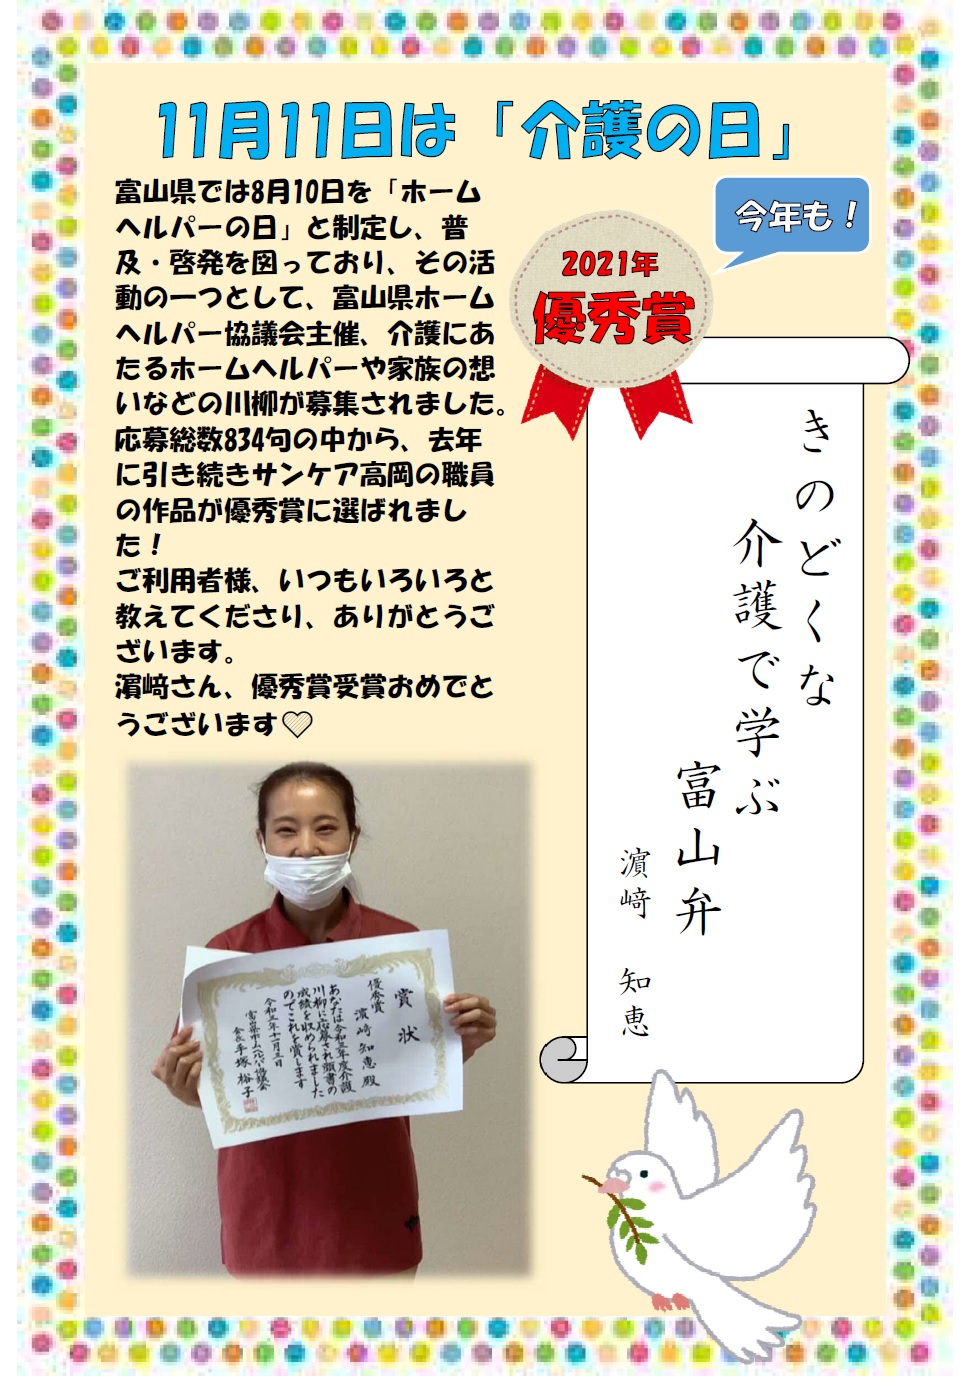 11月11日は「介護の日」
富山県では8月10日を「ホーム
ヘルパーの日」と制定し、普
及・啓発を図っており、その活
動の一つとして、富山県ホーム
ヘルパー協議会主催、介護にあ
たるホームヘルパーや家族の想
いなどの川柳が募集されました。
応募総数834句の中から、去年
に引き続きサンケア高岡の職員
の作品が優秀賞に選ばれまし
た！
ご利用者様、いつもいろいろと
教えてくださり、ありがとうご
ざいます。
濵﨑さん、優秀賞受賞おめでと
うございます♡
今年も！
2021年
優秀賞
きのどくな
介護で学ぶ
富山弁
濵﨑 知恵
賞状
優秀賞
濵﨑知恵殿
あなたは令和三年度介護
川柳に応募され頭書の
成績を収められました
のでこれを賞します
令和三年十一月三日
富山県ホームヘルパー協議会
会長 手塚裕子